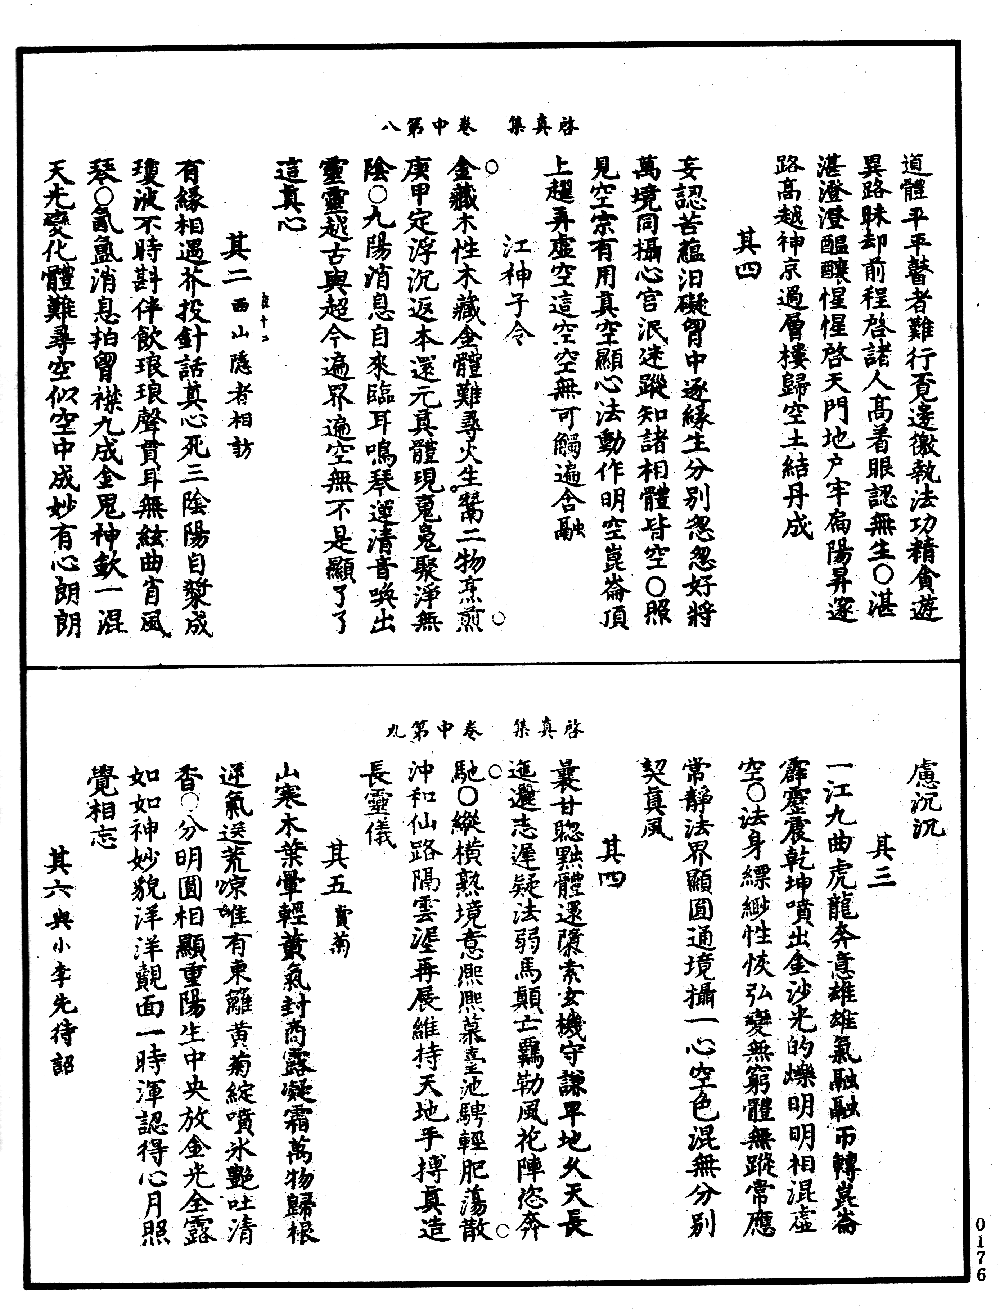 啓真集　卷中第八
道體平平瞽者難行覓邊徼執法功精貪遊
異路昧却前程啓諸人高着眼認無生○湛
湛澄澄醖釀惺惺啓天門地户牢扃陽昇邃
路高越神京過層樓歸空土結丹成
其四
妄認苦蘊汨礙胷中逐緣生分別忽忽好將
萬境同攝心官泯迷蹤知諸相體皆空○照
見空宗有用真空顯心法動作明空崑崙頂
上趯弄虛空這空空無可觸遍含融
江神子令
金藏木性木藏金體難尋火生鬵二物烹煎
庚甲定浮沉返本還元真體現嵬嵬聚淨無
陰○九陽消息自來臨耳鳴琴運清音喚出
靈靈越古與超今遍界遍空無不是顯了了
這真心
其二西山隱者相訪
有緣相遇芥投針話真心死三陰陽自漿成
瓊液不時斟伴飲琅琅聲貫耳無絃曲宵風
琴○氤氲消息拍胷襟九成金鬼神欽一混
天光變化體難尋空似空中成妙有心朗朗
啓真集　卷中第九
慮沉沉
其三
一江九曲虎龍奔意雄雄氣融融帀轉崑崙
霹靂震乾坤噴出金沙光的爍明明相混虛
空○法身縹緲性恢弘變無窮體無蹤常應
常靜法界顯圓通境攝一心空色混無分別
契真風
其四
曩甘聦黜體還隳素女機守謙卑地久天長
迤邐志遲疑法弱馬顛亡羈勒風花陣恣奔
馳○縱橫熟境意熈熈慕臺池騁輕肥蕩散
沖和仙路隔雲涯再展維持天地手搏真造
長靈儀
其五賞菊
山寒木葉暈輕黃氣封商露凝霜萬物歸根
迎氣送荒凉唯有東籬黄菊綻噴氷艷吐清
香○分明圓相顯重陽生中央放金光全露
如如神妙貌洋洋覿面一時渾認得心月照
覺相忘
其六與小李先待詔
0176